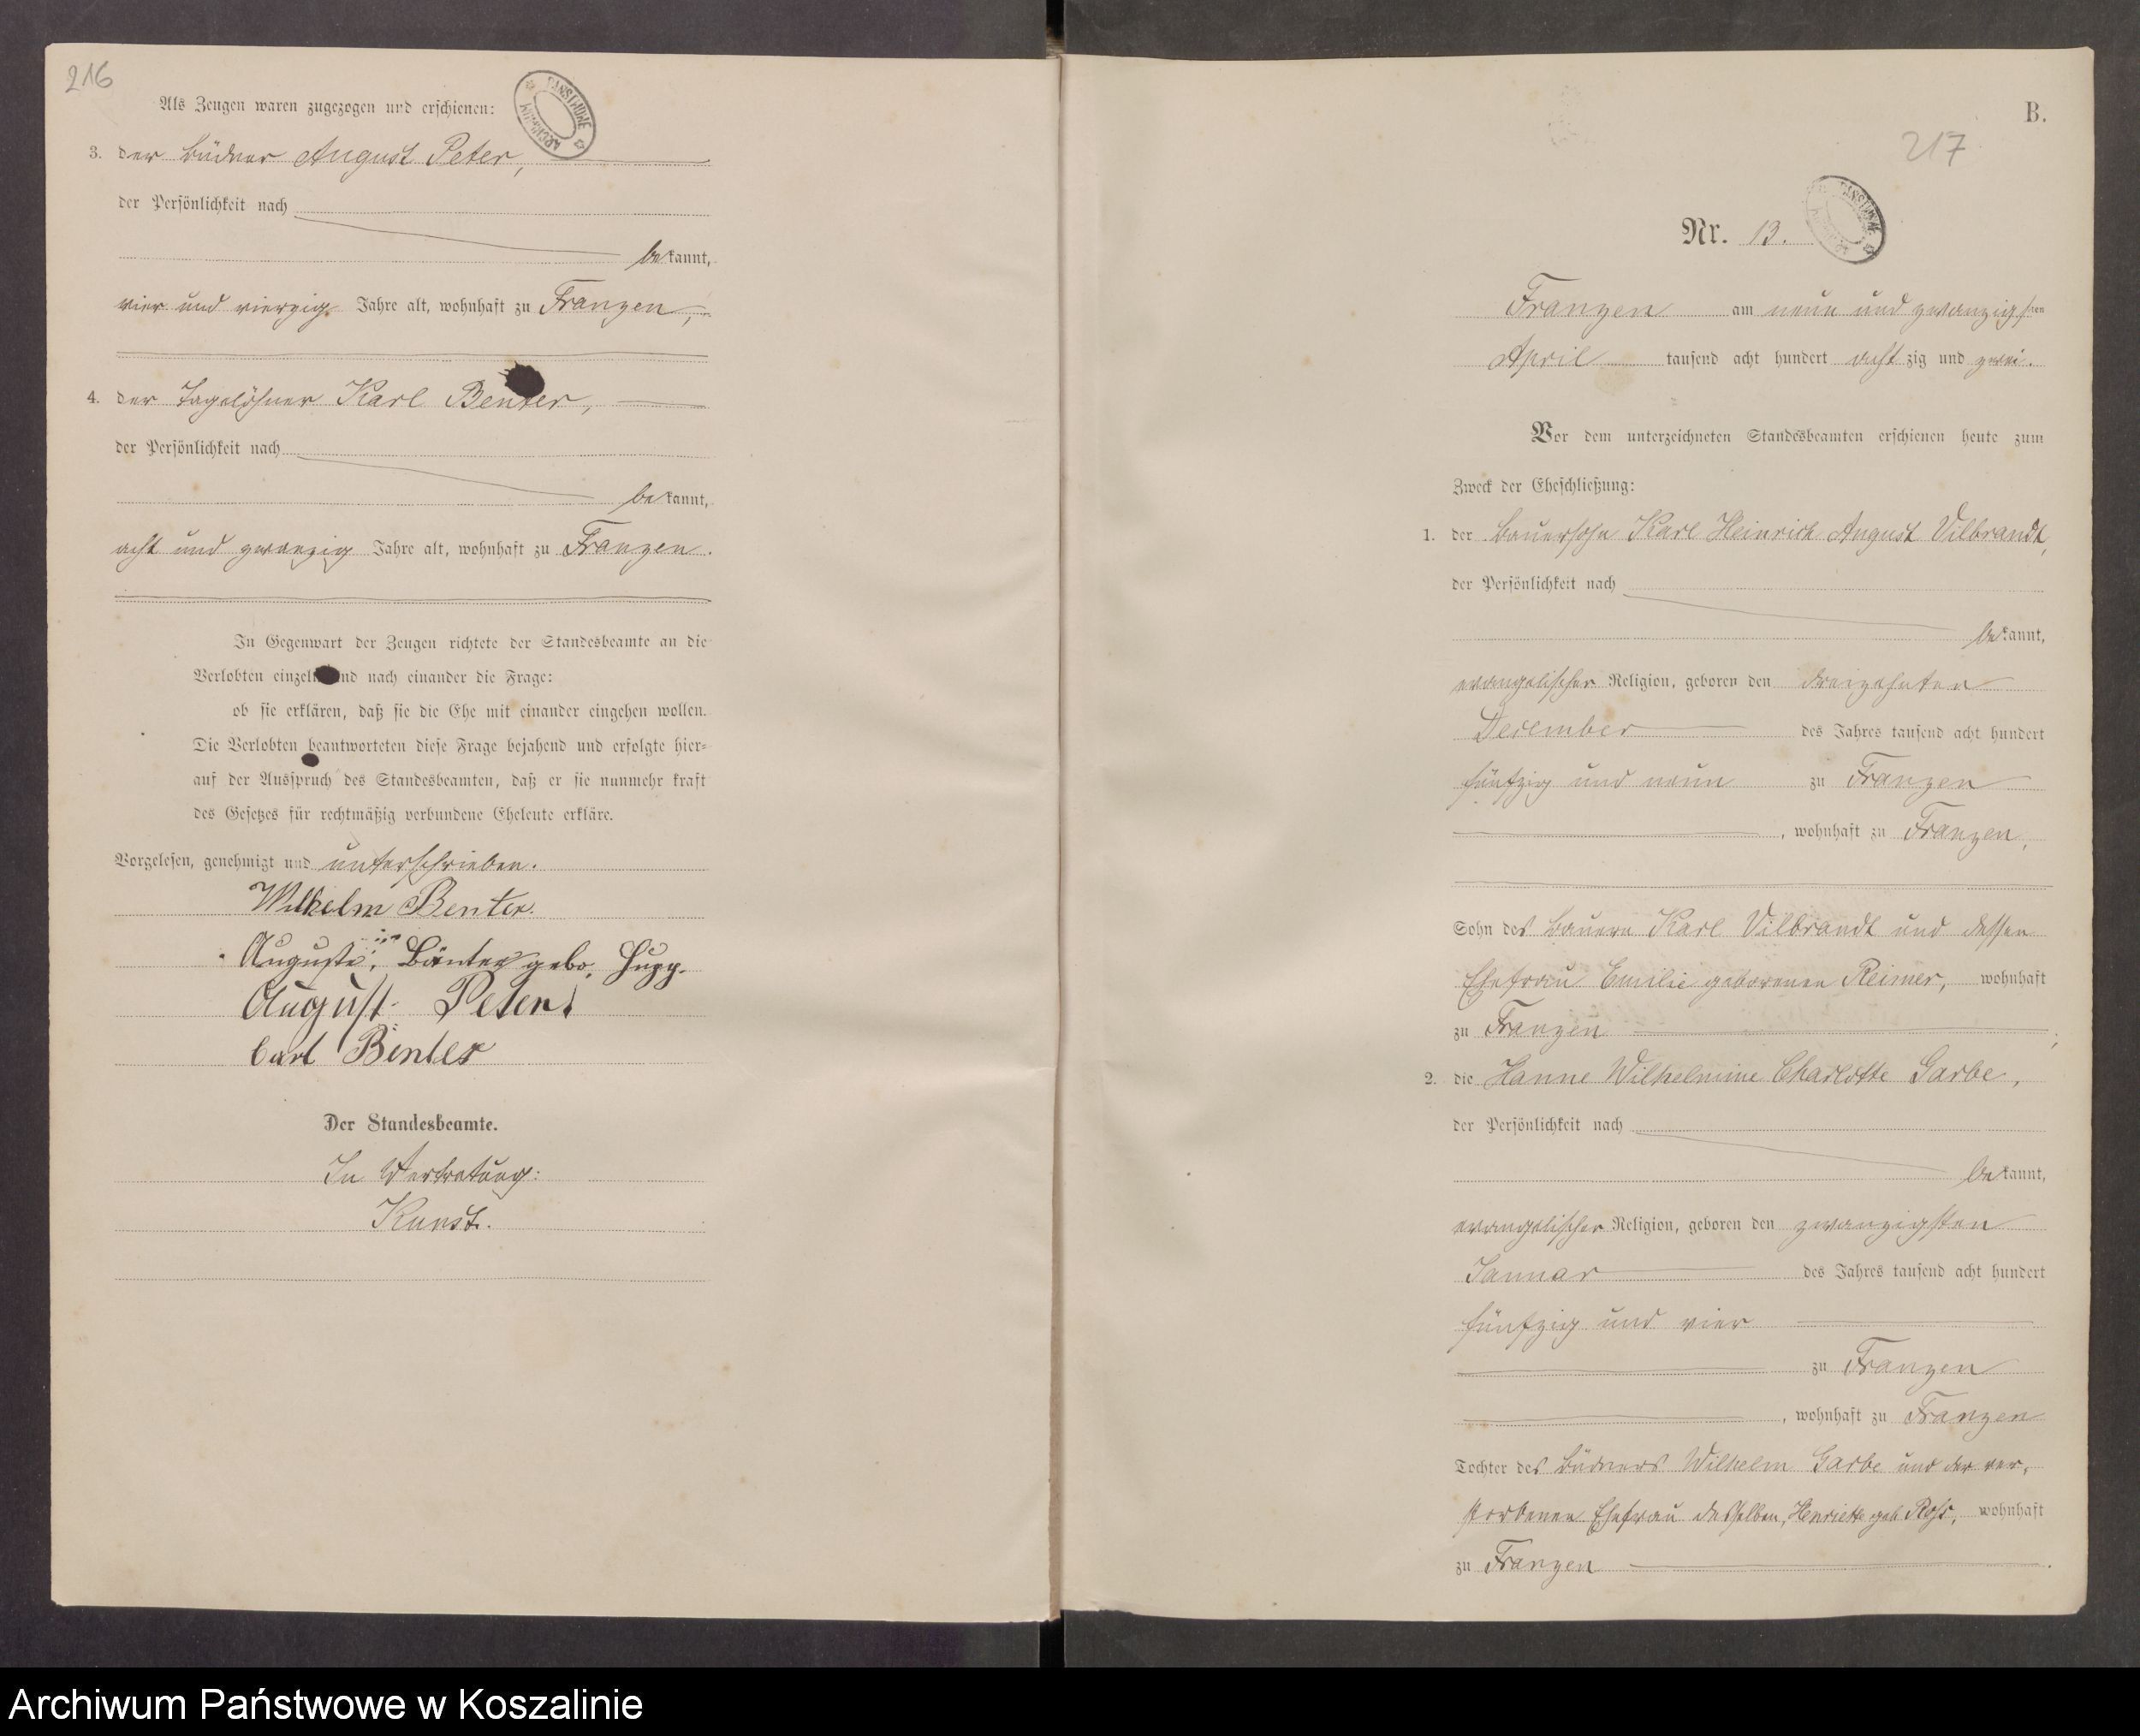 216
Als Zeugen waren zugezogen und erschienen:
3. der Büdner August Peter,
der Persönlichkeit nach
bekannt,
vier und vierzig Jahre alt, wohnhaft zu Franzen,
4. der Tagelöhner Karl Benter,
der Persönlichkeit nach
bekannt,
acht und zwanzig Jahre alt, wohnhaft zu Franzen.
In Gegenwart der Zeugen richtete der Standesbeamte an die
Verlobten einzeln und nach einander die Frage:
ob sie erklären, daß sie die Ehe mit einander eingehen wollen.
Die Verlobten beantworteten diese Frage bejahend und erfolgte hier-
auf der Ausspruch des Standesbeamten, daß er sie nunmehr kraft
des Gesetzes für rechtmäßig verbundene Eheleute erkläre.
Vorgelesen, genehmigt und unterschrieben.
Wilhelm Benter.
Auguste Bänter gebo.
August Peter
Carl Benter
Der Standesbeamte.
In Vertretung:
Kunst.
ARCHIWUM PAŃSTWOWE
B.
217
Nr. 13.
Franzen am neun und zwanzigsten
April tausend acht hundert achtzig und zwei.
Vor dem unterzeichneten Standesbeamten erschienen heute zum
Zweck der Eheschließung:
1. der Bauersohn Karl Heinrich August Vilbrandt,
der Persönlichkeit nach
bekannt,
evangelischer Religion, geboren den dreizehnten
December des Jahres tausend acht hundert
fünfzig und neun zu Franzen
, wohnhaft zu Franzen,
Sohn des Bauern Karl Vilbrandt und dessen
Ehefrau Emilie geborenen Reimer, wohnhaft
zu Franzen ;
2. die Hanne Wilhelmine Charlotte Garbe,
der Persönlichkeit nach
bekannt,
evangelischer Religion, geboren den zwanzigsten
Januar des Jahres tausend acht hundert
fünfzig und vier
zu Franzen
, wohnhaft zu Franzen
Tochter des Büdners Wilhelm Garbe und der ver-
storbenen Ehefrau desselben, Henriette geb. wohnhaft
zu Franzen .
Archiwum Państwowe w Koszalinie